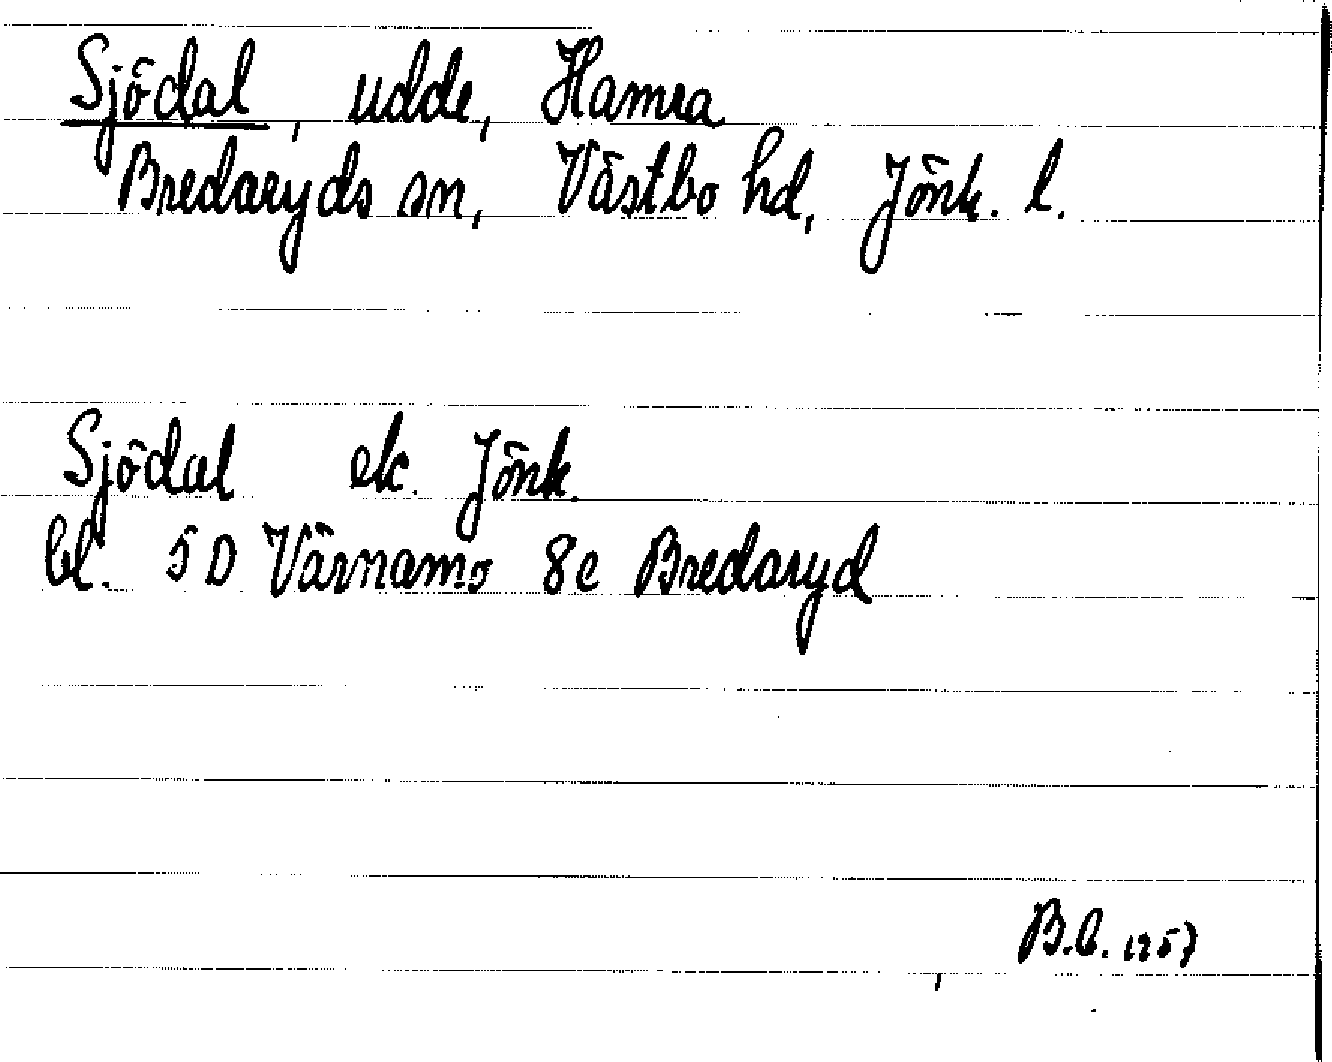 Sjödal, udde, Hamra
Bredaryds sn, Västbo hd, Jönk. l.
Sjödal ek. Jönk.
bl. 5D Värnamo 8e Bredaryd
B.b. 1957